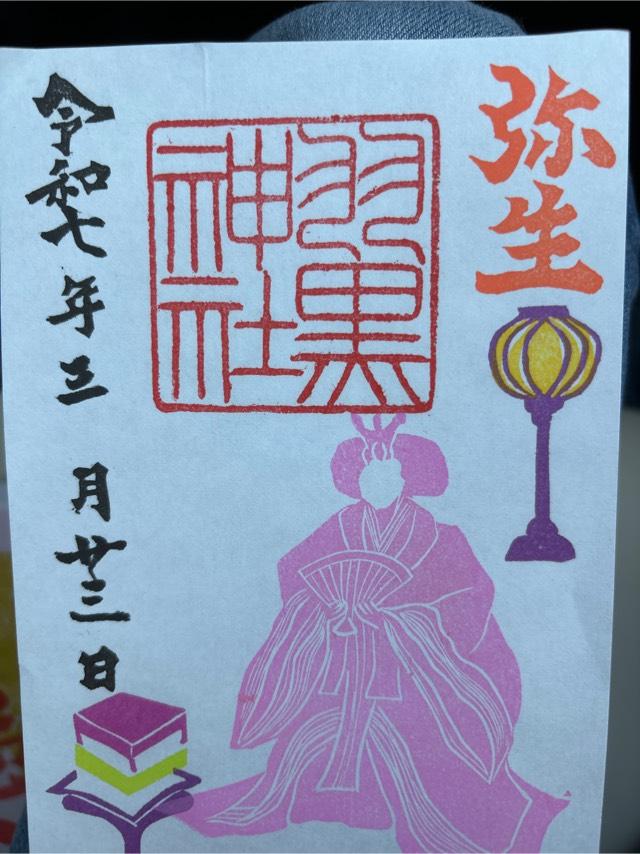 弥生
羽黒
神社
令和七年三月廿三日